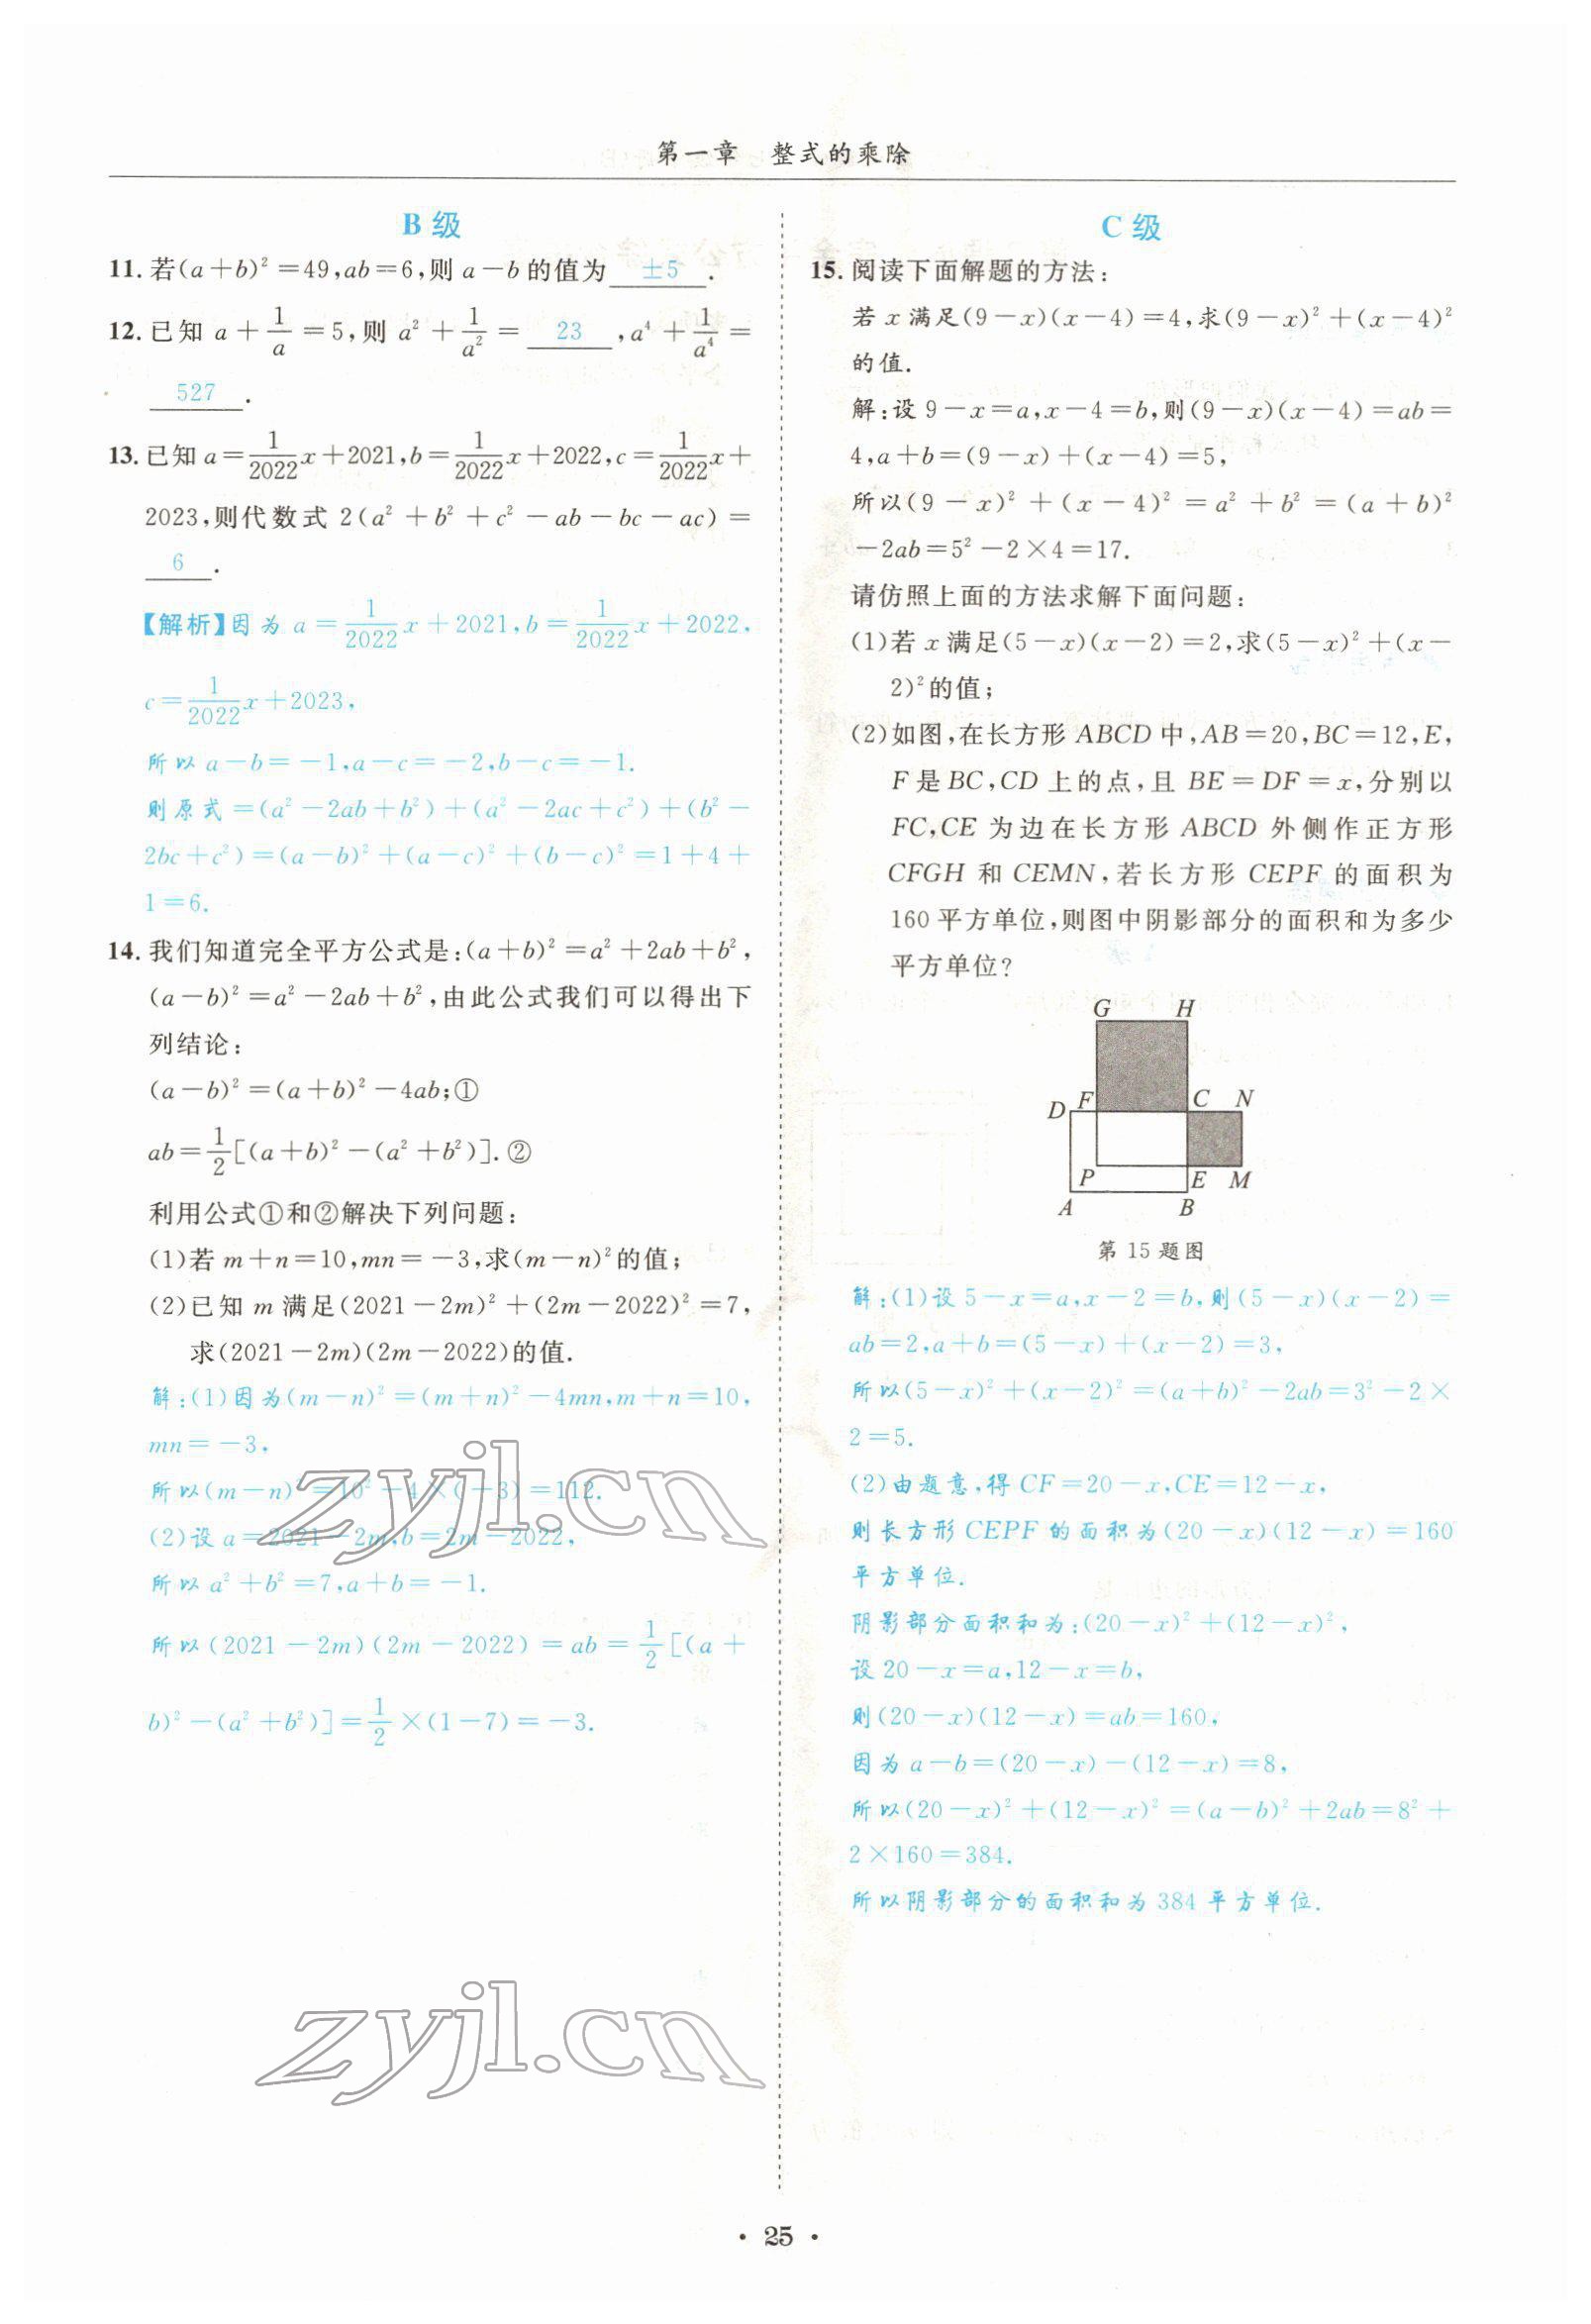 第一章 整式的乘除
B 级
11. 若(a+b)²=49,ab=6,则 a-b 的值为 ±5 .
12. 已知 a+1/a=5,则 a²+1/a²= 23 ,a⁴+1/a⁴=
527 .
13. 已知 a=1/2022 x+2021,b=1/2022 x+2022,c=1/2022 x+
2023,则代数式 2(a²+b²+c²-ab-bc-ac)=
6 .
【解析】因为 a=1/2022 x+2021,b=1/2022 x+2022,
c=1/2022 x+2023,
所以 a-b=-1,a-c=-2,b-c=-1.
则原式=(a²-2ab+b²)+(a²-2ac+c²)+(b²-
2bc+c²)=(a-b)²+(a-c)²+(b-c)²=1+4+
1=6.
14. 我们知道完全平方公式是:(a+b)²=a²+2ab+b²,
(a-b)²=a²-2ab+b²,由此公式我们可以得出下
列结论:
(a-b)²=(a+b)²-4ab;①
ab=1/2[(a+b)²-(a²+b²)].②
利用公式①和②解决下列问题:
(1)若 m+n=10,mn=-3,求(m-n)²的值;
(2)已知 m 满足(2021-2m)²+(2m-2022)²=7,
求(2021-2m)(2m-2022)的值.
解:(1)因为(m-n)²=(m+n)²-4mn,m+n=10,
mn=-3,
所以(m-n)²=10²-4×(-3)=112.
(2)设 a=2021-2m,b=2m-2022,
所以 a²+b²=7,a+b=-1.
所以(2021-2m)(2m-2022)=ab=1/2[(a+
b)²-(a²+b²)]=1/2×(1-7)=-3.
zyjl.cn
zyjl.cn
C 级
15. 阅读下面解题的方法:
若 x 满足(9-x)(x-4)=4,求(9-x)²+(x-4)²
的值.
解:设 9-x=a,x-4=b,则(9-x)(x-4)=ab=
4,a+b=(9-x)+(x-4)=5,
所以(9-x)²+(x-4)²=a²+b²=(a+b)²
-2ab=5²-2×4=17.
请仿照上面的方法求解下面问题:
(1)若 x 满足(5-x)(x-2)=2,求(5-x)²+(x-
2)²的值;
(2)如图,在长方形 ABCD 中,AB=20,BC=12,E,
F 是 BC,CD 上的点,且 BE=DF=x,分别以
FC,CE 为边在长方形 ABCD 外侧作正方形
CFGH 和 CEMN,若长方形 CEPF 的面积为
160 平方单位,则图中阴影部分的面积和为多少
平方单位?
G H
D F C N
P E M
A B
第 15 题图
解:(1)设 5-x=a,x-2=b,则(5-x)(x-2)=
ab=2,a+b=(5-x)+(x-2)=3,
所以(5-x)²+(x-2)²=(a+b)²-2ab=3²-2×
2=5.
(2)由题意,得 CF=20-x,CE=12-x,
则长方形 CEPF 的面积为(20-x)(12-x)=160
平方单位.
阴影部分面积和为:(20-x)²+(12-x)²,
设 20-x=a,12-x=b,
则(20-x)(12-x)=ab=160,
因为 a-b=(20-x)-(12-x)=8,
所以(20-x)²+(12-x)²=(a-b)²+2ab=8²+
2×160=384.
所以阴影部分的面积和为 384 平方单位.
• 25 •